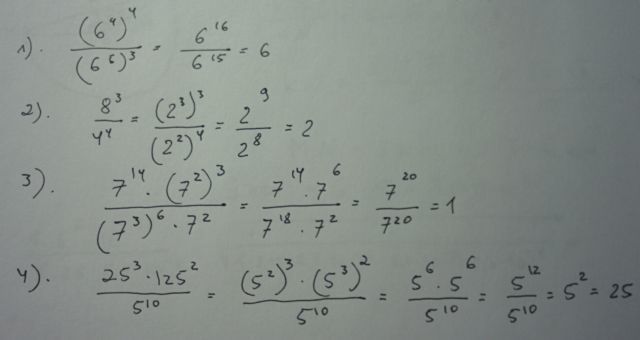 1). (6^4)^4 / (6^5)^3 = 6^16 / 6^15 = 6
2). 8^3 / 4^4 = (2^3)^3 / (2^2)^4 = 2^9 / 2^8 = 2
3). 7^14 · (7^2)^3 / (7^3)^6 · 7^2 = 7^14 · 7^6 / 7^18 · 7^2 = 7^20 / 7^20 = 1
4). 25^3 · 125^2 / 5^10 = (5^2)^3 · (5^3)^2 / 5^10 = 5^6 · 5^6 / 5^10 = 5^12 / 5^10 = 5^2 = 25